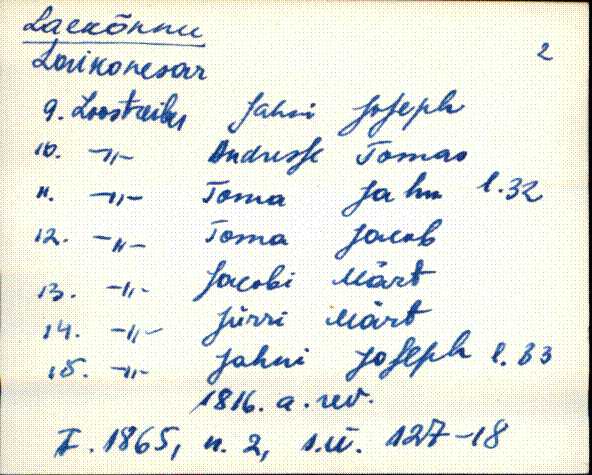 Laekõnnu
2
Lorikonesar
9. Loostreiber Jahni Joseph
10. -"- Andresse Tomas
11. -"- Toma Jahn l. 32
12. -"- Toma Jacob
13. -"- Jacobi Märt
14. -"- Jürri Märt
15. -"- Jahni Joseph l. 33
1816. a. rev.
F. 1865, n. 2, s.ü. 127-18